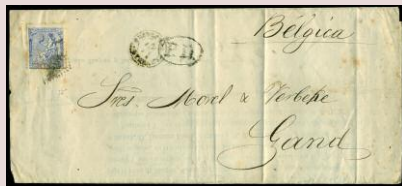 Bélgica
Sres. Morel & Verbeke
Gand